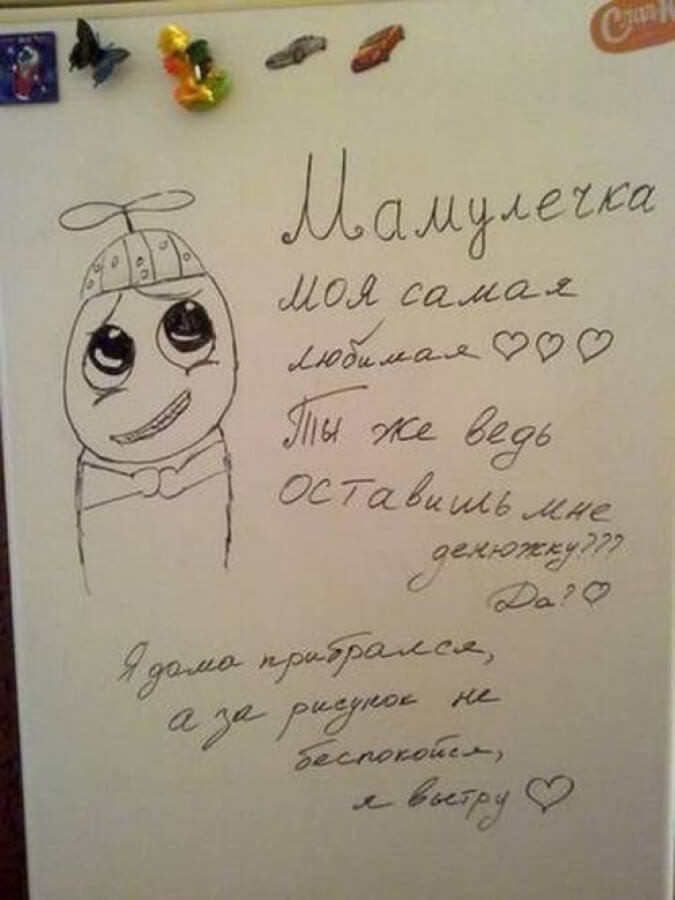 Мамулечка
моя самая
любимая ♡♡♡
Ты же ведь
оставишь мне
денюжку???
Да?♡
Я дома прибрался,
а за рисунок не
беспокойся,
я вытру ♡